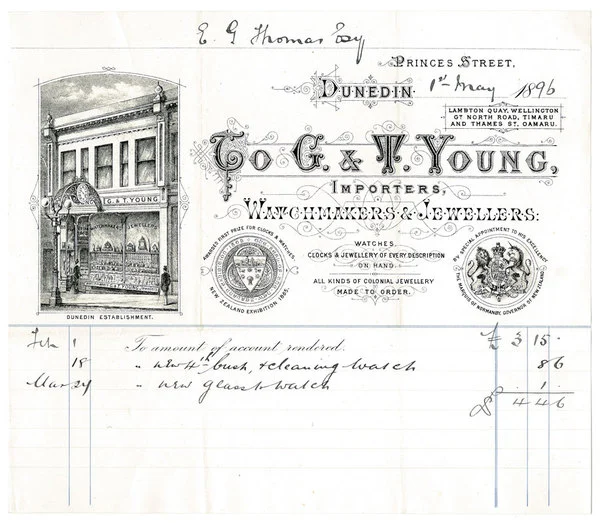 E. G Thomas Esq
PRINCES STREET,
DUNEDIN. 1st May 1896
LAMBTON QUAY, WELLINGTON
GT NORTH ROAD, TIMARU
AND THAMES ST. OAMARU.
To G. & T. YOUNG,
IMPORTERS,
WATCHMAKERS & JEWELLERS:
G. & T. YOUNG
WATCHMAKERS JEWELLERS
DUNEDIN ESTABLISHMENT.
AWARDED FIRST PRIZE FOR CLOCKS & WATCHES,
NEW ZEALAND EXHIBITION 1865.
WATCHES
CLOCKS & JEWELLERY OF EVERY DESCRIPTION
ON HAND.
ALL KINDS OF COLONIAL JEWELLERY
MADE TO ORDER.
BY SPECIAL APPOINTMENT TO HIS EXCELLENCY
THE MARQUIS OF NORMANBY, GOVERNOR OF NEW ZEALAND
Feb 1 To amount of account rendered. £ 3 15 .
18 " new 4th bush, & cleaning watch 8 6
Mar 24 " new glass to watch . 1 .
4 4 6